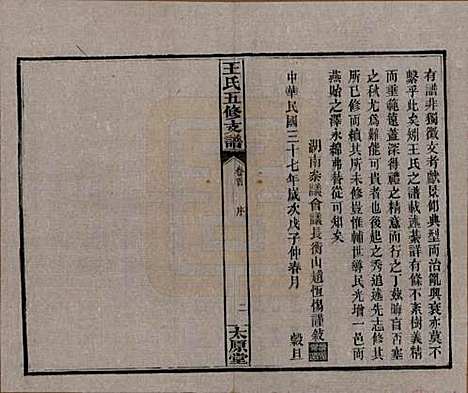 有譜非獨徵文考獻景仰典型而治亂興衰亦莫不
繫乎此矣矧王氏之譜載述綦詳有條不紊樹義精
而垂範遠蓋深得禮之精意而行者丁茲晦盲否塞
之秋尤為難能可貴也後起之秀追述先志修其
所已修者因而及其所未修豈惟輔世導民光增一邑而
燕貽之澤永綿弗替從可知矣
湖南參議會議長衡山趙恆惕謹敘
中華民國三十七年歲次戊子仲春月 穀旦
王氏五修支譜
卷首
序
二
太原堂